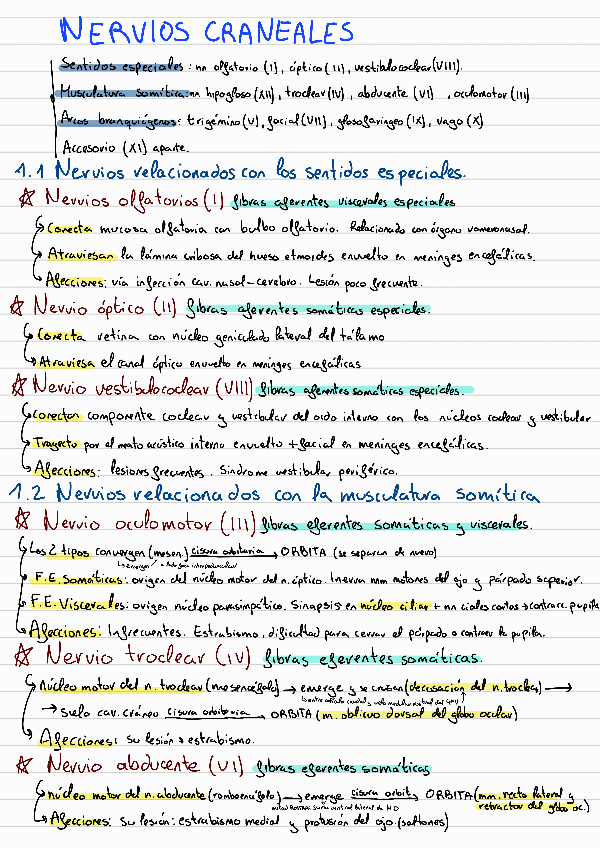 NERVIOS CRANEALES
Sentidos especiales: nn olfatorio (I), óptico (II), vestibulococlear (VIII).
Musculatura somítica: nn hipogloso (XII), troclear (IV), abducente (VI), oculomotor (III)
Arcos branquiógenos: trigémino (V), facial (VII), glosofaríngeo (IX), vago (X)
Accesorio (XI) aparte.
1.1 Nervios relacionados con los sentidos especiales.
☆ Nervios olfatorios (I) fibras aferentes viscerales especiales
Conecta mucosa olfatoria con bulbo olfatorio. Relacionado con órgano vomeronasal.
Atraviesan la lámina cribosa del hueso etmoides envuelto en meninges encefálicas.
Afecciones: vía infección cav. nasal-cerebro. Lesión poco frecuente.
☆ Nervio óptico (II) fibras aferentes somáticas especiales.
Conecta retina con núcleo geniculado lateral del tálamo
Atraviesa el canal óptico envuelto en meninges encefálicas
☆ Nervio vestibulococlear (VIII) fibras aferentes somáticas especiales.
Conectan componente coclear y vestibular del oido interno con los núcleos coclear y vestibular
Trayecto por el meato acústico interno envuelto + facial en meninges encefálicas.
Afecciones: lesiones frecuentes. Síndrome vestibular periférico.
1.2 Nervios relacionados con la musculatura somítica
☆ Nervio oculomotor (III) fibras eferentes somáticas y viscerales.
Los 2 tipos convergen (mesen.) cisura orbitaria → ORBITA (se separan de nuevo)
F.E. Somáticas: origen del núcleo motor del n. óptico. Inerva mm motores del ojo y párpado superior.
F.E. Viscerales: origen núcleo parasimpático. Sinapsis en núcleo ciliar + nn ciales cortos → contracc. pupila
Afecciones: Infrecuentes. Estrabismo, dificultad para cerrar el párpado o contraer la pupila.
☆ Nervio troclear (IV) fibras eferentes somáticas.
Núcleo motor del n. troclear (mesencéfalo) → emerge y se cruzan (decusación del n. troclear) →
→ Suelo cav. cráneo cisura orbitaria → ORBITA (m. oblicuo dorsal del globo ocular)
Afecciones: su lesión → estrabismo.
☆ Nervio abducente (VI) fibras eferentes somáticas
núcleo motor del n. abducente (romboencéfalo) → emerge cisura orbit. → ORBITA (mm. recto lateral y
retractor del globo oc.)
Afecciones: su lesión: estrabismo medial y protusión del ojo. (saltones)